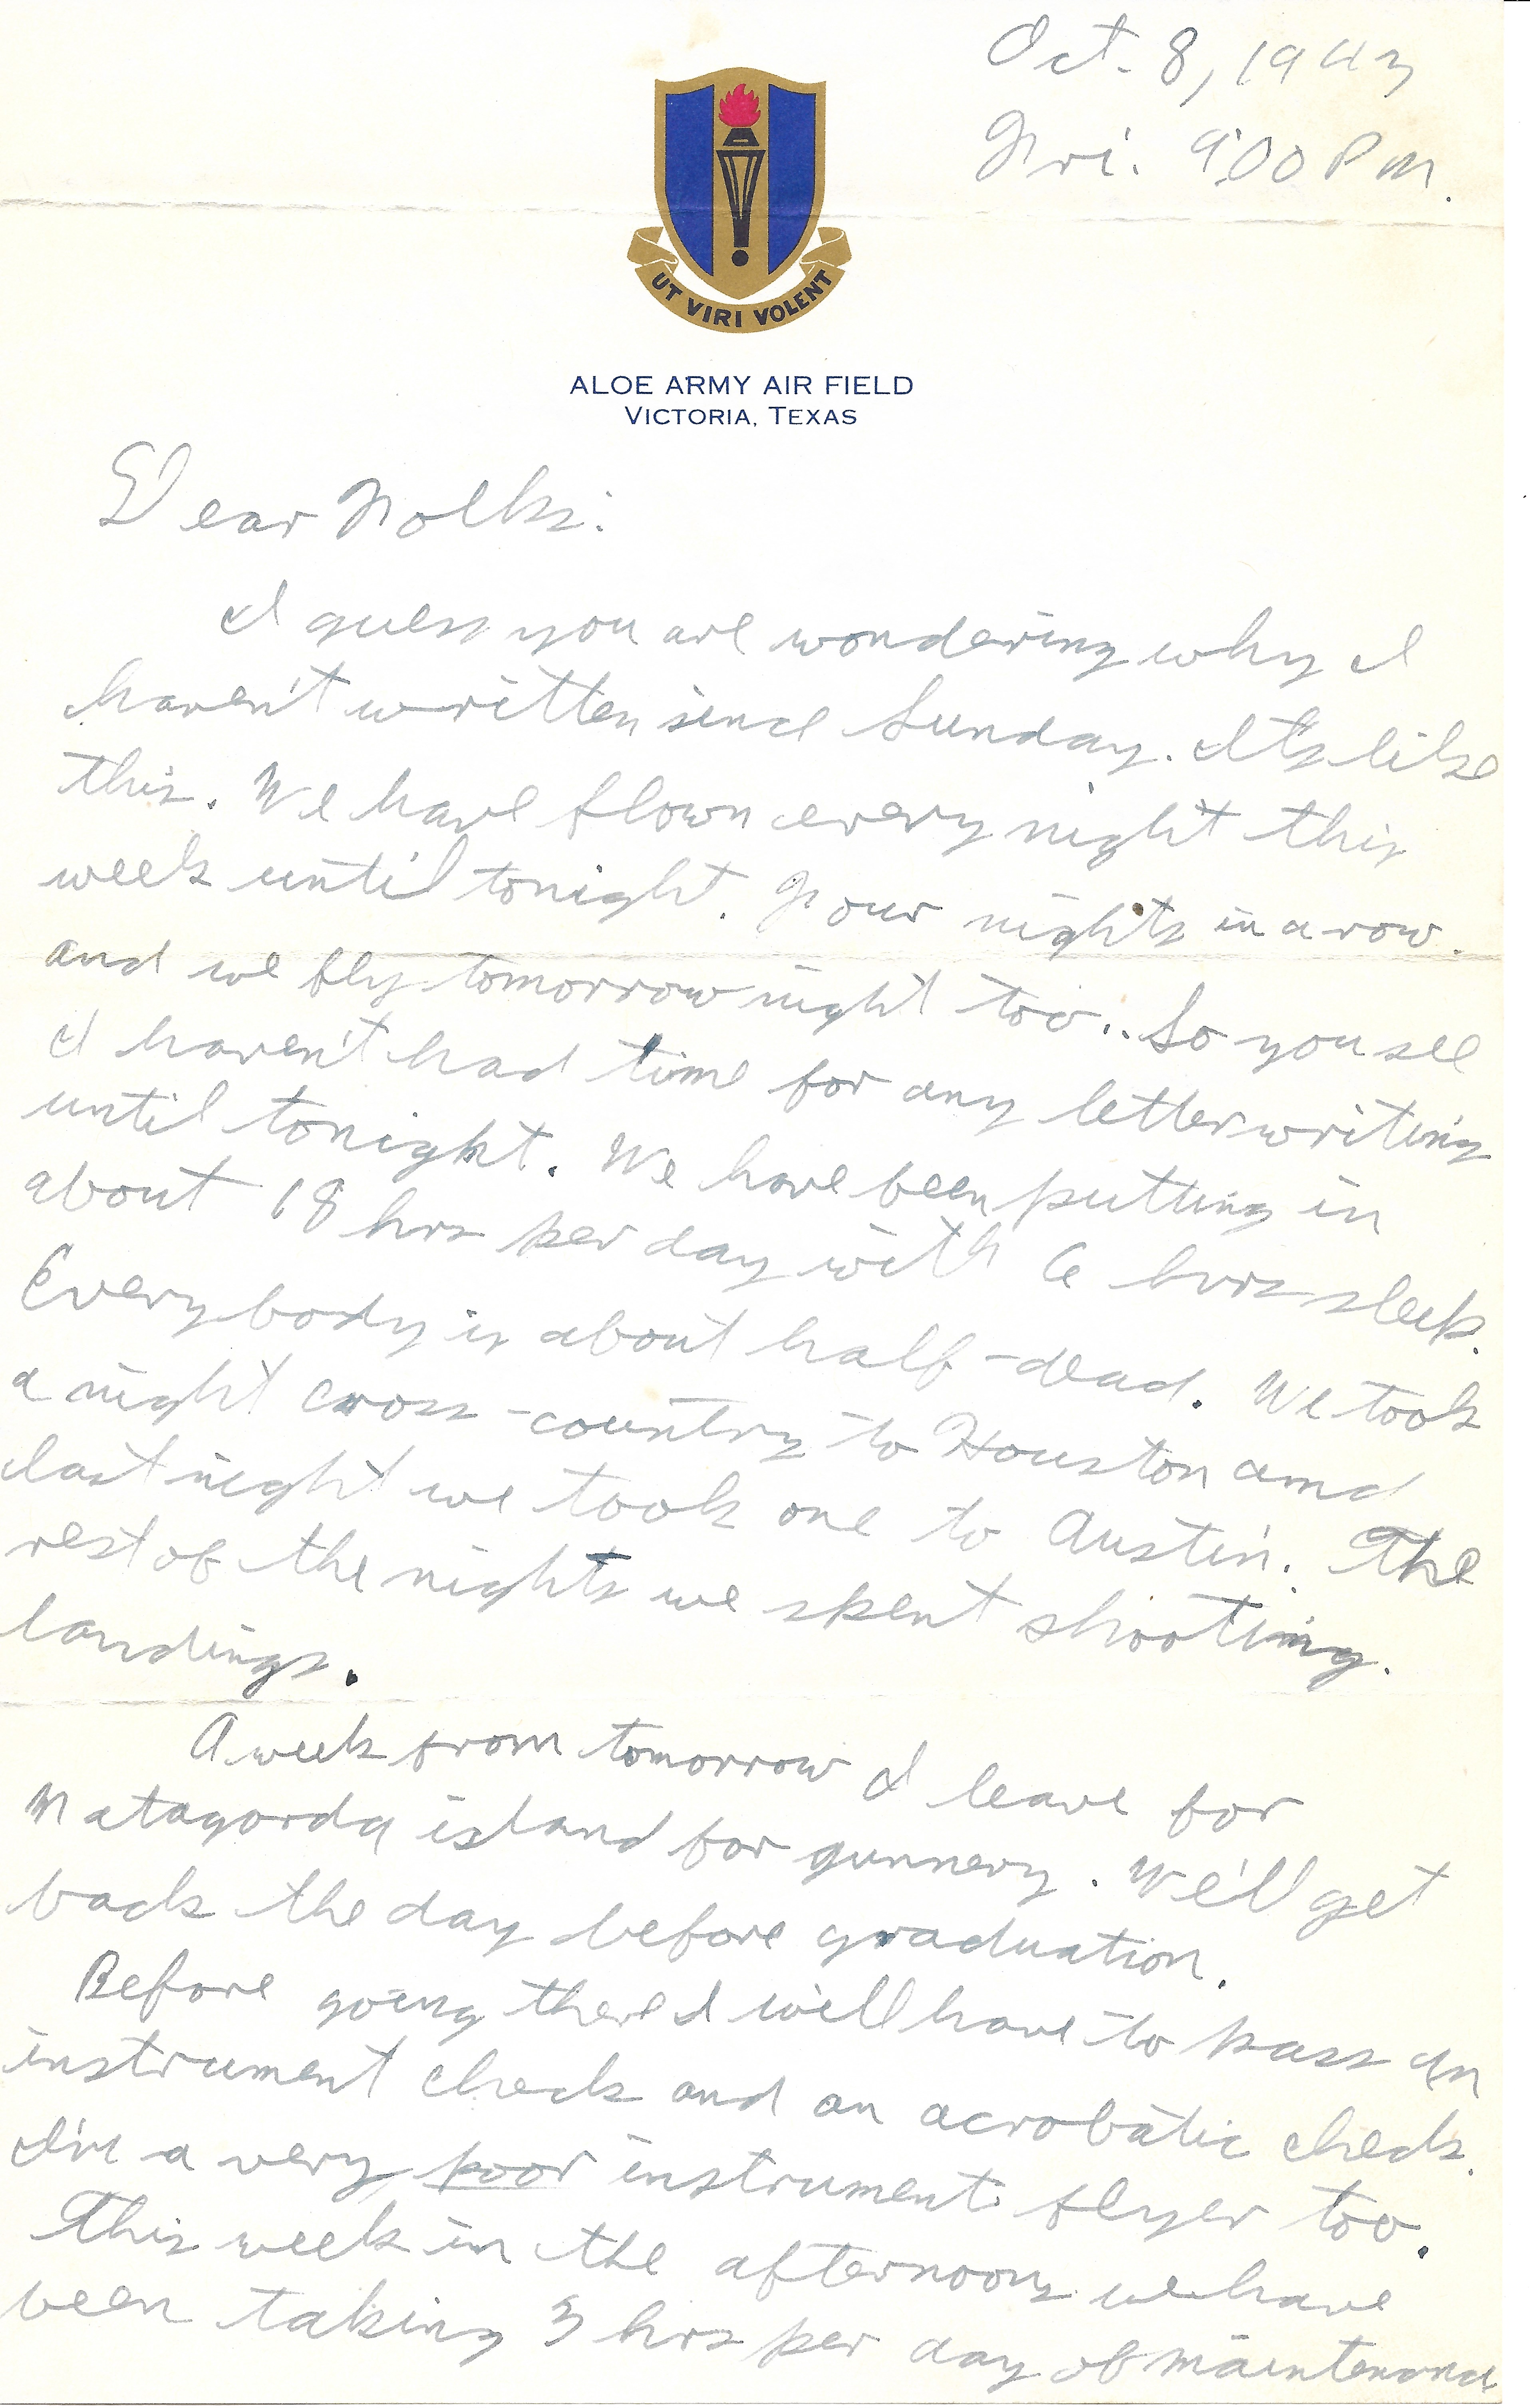 Oct. 8, 1943
Fri. 9:00 P.M.
UT VIRI VOLENT
ALOE ARMY AIR FIELD
VICTORIA, TEXAS
Dear Folks:
I guess you are wondering why I
haven't written since Sunday. It's like
this. We have flown every night this
week until tonight. Four nights in a row.
and we fly tomorrow night too.. So you see
I haven't had time for any letter writing
until tonight. We have been putting in
about 18 hrs per day with 6 hurs sleep.
Everybody is about half-dead. We took
a night cross-country to Houston and
last night we took one to Austin. The
rest of the nights we spent shooting.
landings.
A week from tomorrow I leave for
Matagorda island for gunnery. We'll get
back the day before graduation.
Before going there I will have to pass an
instrument check and an acrobatic check.
I'm a very poor instrument flyer too.
This week in the afternoons we have
been taking 3 hrs per day of maintenance